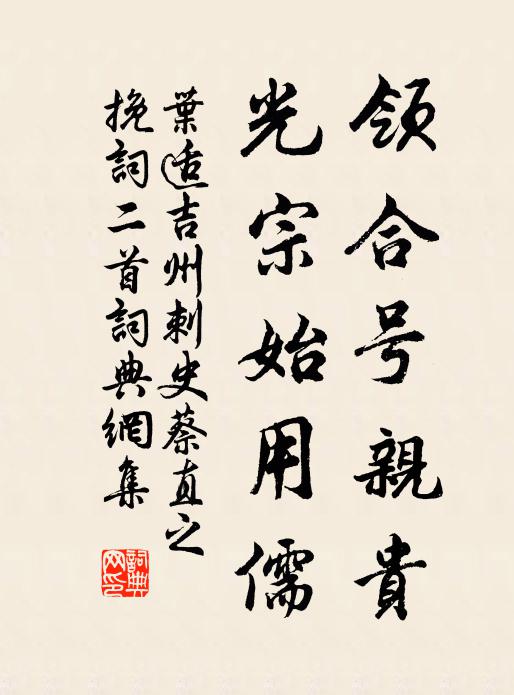 领合号親貴
光宗始用儒
葉適吉州刺史蔡直之
挽詞二首詞典網集
詞典网印